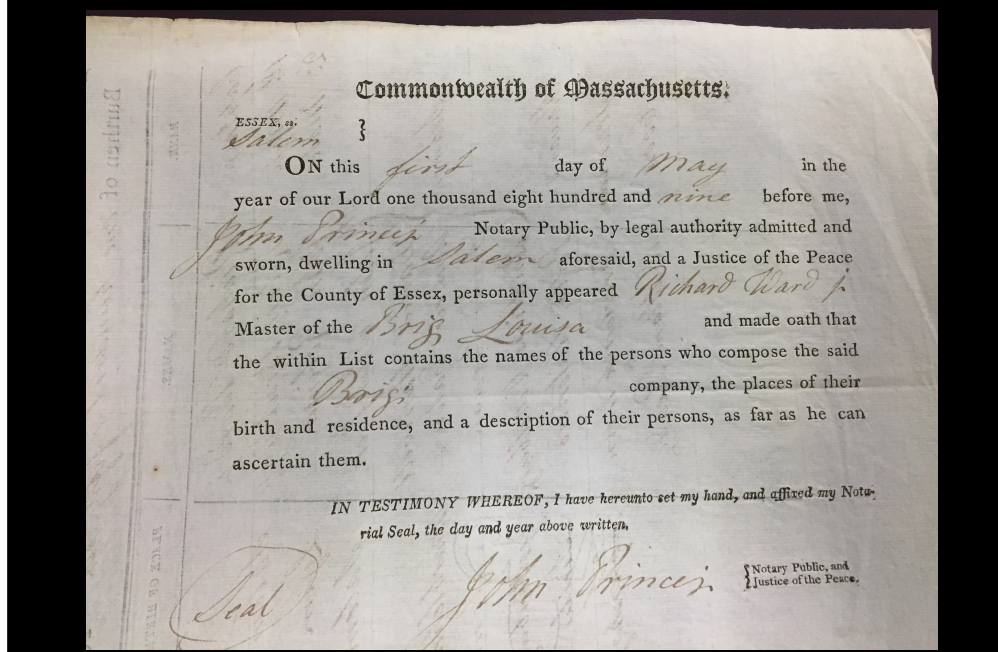 Commonwealth of Massachusetts.
ESSEX, ss. }
Salem
ON this first day of May in the
year of our Lord one thousand eight hundred and nine before me,
John Prince jr Notary Public, by legal authority admitted and
sworn, dwelling in Salem aforesaid, and a Justice of the Peace
for the County of Essex, personally appeared Richard Ward jr
Master of the Brig Louisa and made oath that
the within List contains the names of the persons who compose the said
Brigs company, the places of their
birth and residence, and a description of their persons, as far as he can
ascertain them.
IN TESTIMONY WHEREOF, I have hereunto set my hand, and affixed my Nota-
rial Seal, the day and year above written,
John Prince jr } Notary Public, and
Justice of the Peace.
Seal
Burthen of